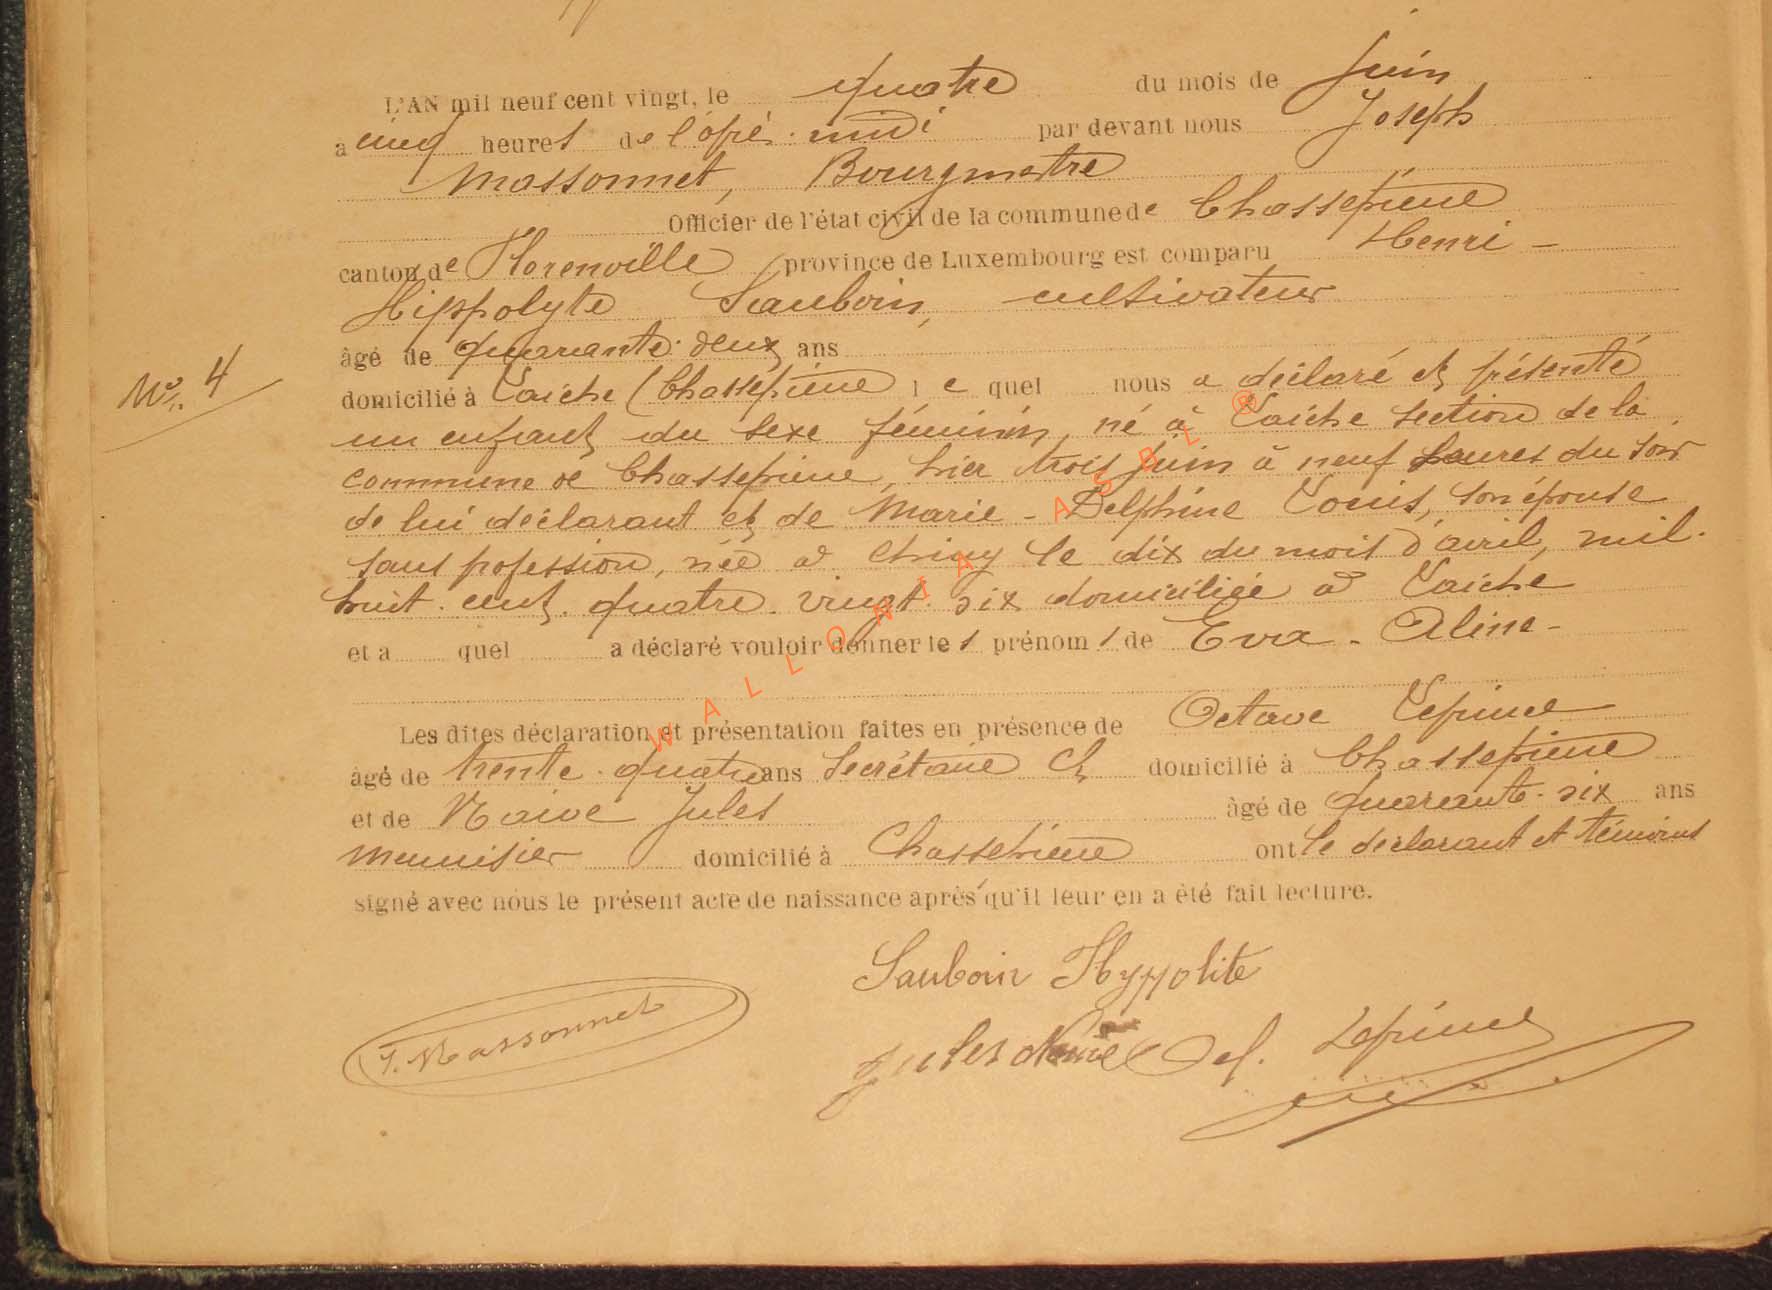 L'AN mil neuf cent vingt, le quatre du mois de Juin
a cinq heures de l'après-midi par devant nous Joseph
Massonnet, Bourgmestre
Officier de l'état civil de la commune de Chassepierre
canton de Florenville province de Luxembourg est comparu Henri-
Hippolyte Sauboin, cultivateur
âgé de quarante-deux ans
N°. 4
domicilié à Laiche (Chassepierre) lequel nous a déclaré et présenté
un enfant du sexe féminin, né à Laiche section de la
commune de Chassepierre, hier trois Juin à neuf heures du soir
de lui déclarant et de Marie-Delphine Louis, son épouse
sans profession, née à Chiny le dix du mois d'avril, mil-
huit-cent-quatre-vingt-six domiciliée à Laiche
et a quel a déclaré vouloir donner les prénoms de Eva-Aline-
Les dites déclaration et présentation faites en présence de Octave Lepine
âgé de trente-quatre ans Secrétaire Cl domicilié à Chassepierre
et de Naive Jules âgé de quarante-six ans
menuisier domicilié à Chassepierre ont le déclarant et témoins
signé avec nous le présent acte de naissance après qu'il leur en a été fait lecture.
Sauboin Hyppolite
J. Massonnet
Jules Oct. Lepine
WALLONIA ASBL ®